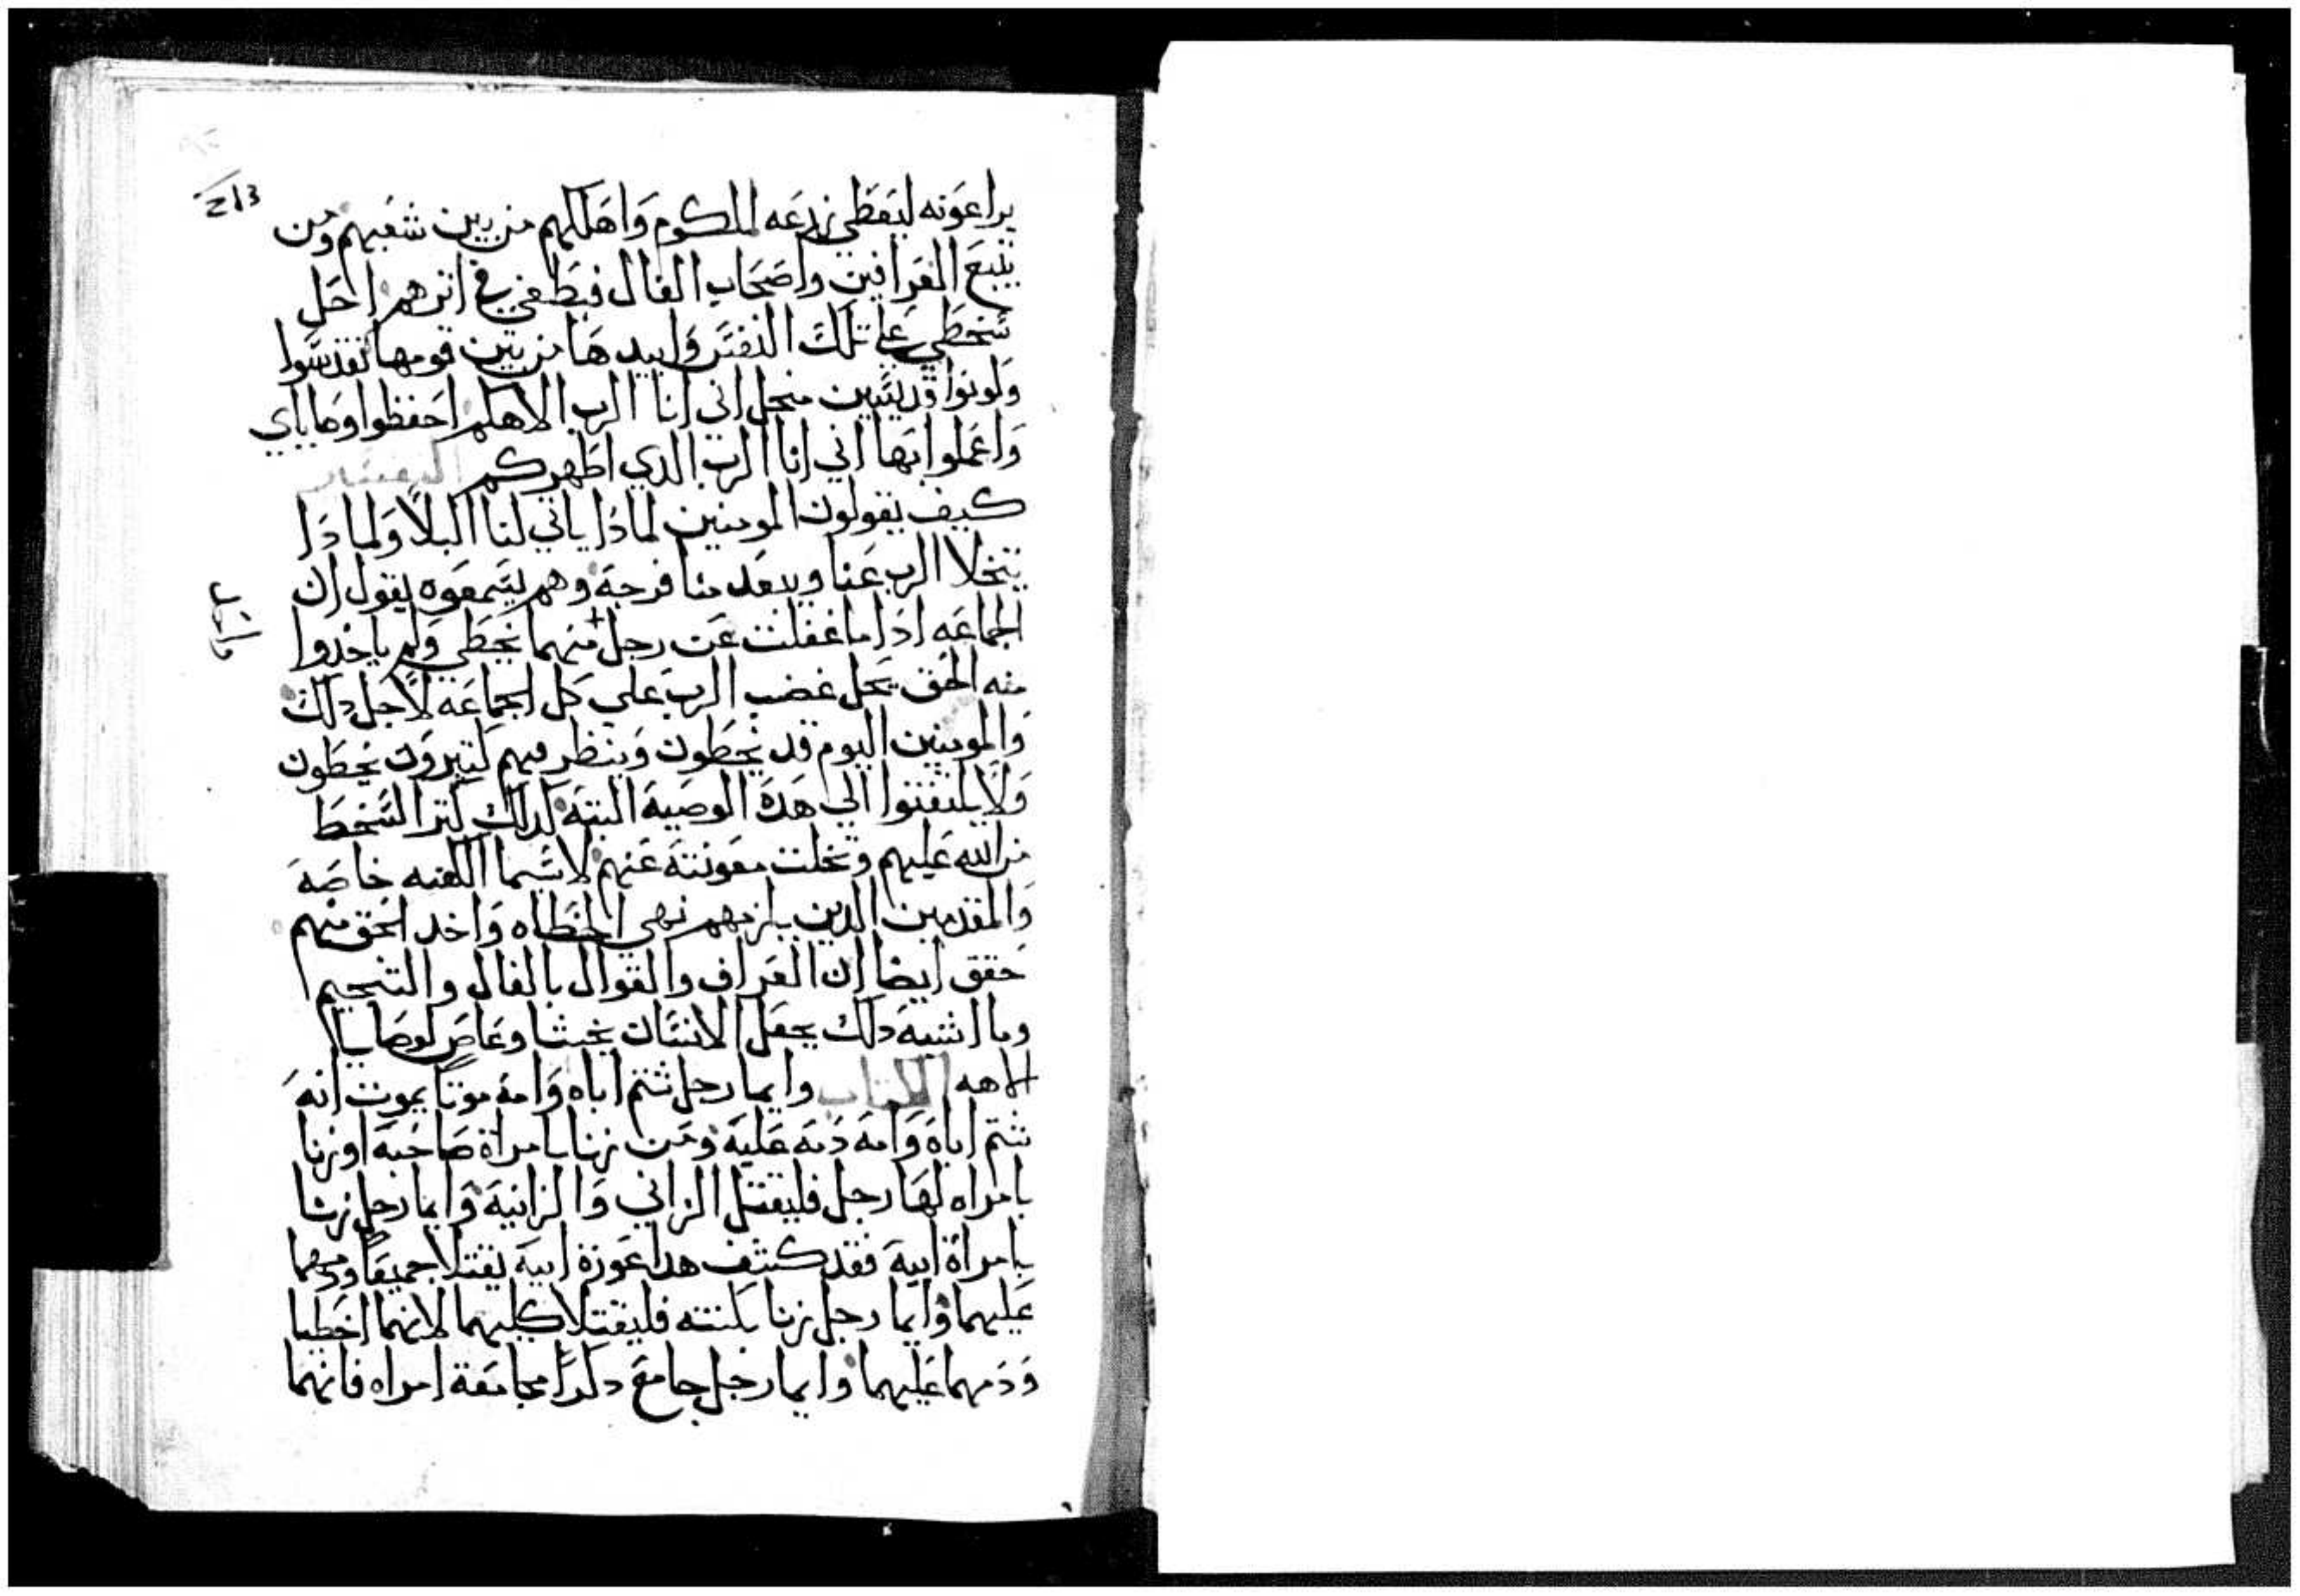 يراعونه ليعطي زرعه لملكوم واهلكهم من بين شعبهم ومن
يتبع العرافين واصحاب الفال فيطغي في اثرهم احل
سخطي علي تلك النفس وابيدها من بين قومها تقدسوا
وكونوا قديسين منجل اني انا الرب الاهكم احفظوا وصاياي
واعملوا بها اني انا الرب الدي اطهركم التفسير
كيف يقولون المومنين لمادا ياتي لنا البلا ولمادا
يتخلا الرب عنا ويبعد منا فرجه وهم يسمعوه يقول ان
الجماعه ادا ما غفلت عن رجل منهما يخطي ولم ياخدوا
منه الحق يحل غضب الرب علي كل الجماعه لاجل دلك
والمومنين اليوم قد يخطون وينظر فيهم كتيرون يخطون
ولا يلتفتوا الي هده الوصيه البته لدلك كتر السخط
من الله عليهم وتخلت معونته عنهم لاسيما الكهنه خاصه
والمقدمين الدين يلزمهم نهي الخطاه واخد الحق منهم
حقق ايضا ان العراف والقوال بالفال والتنجيم
وما اشبه دلك يجعل الانسان نجسا وعاص لوصايا
الاهه الكتاب وايما رجل شتم اباه وامه موتا يموت انه
شتم اباه وامه دمه عليه ومن زنا بامراة صاحبه او زنا
بامراه لها رجل فليقتل الزاني والزانيه وايما رجل زنا
بامراة ابيه فقد كشف هدا عورة ابيه يقتلا جميعا ودمهما
عليهما وايما رجل زنا بكنته فليقتلا كليهما لانهما اخطيا
ودمهما عليهما وايما رجل جامع دكرا مجامعة امراه فانهما